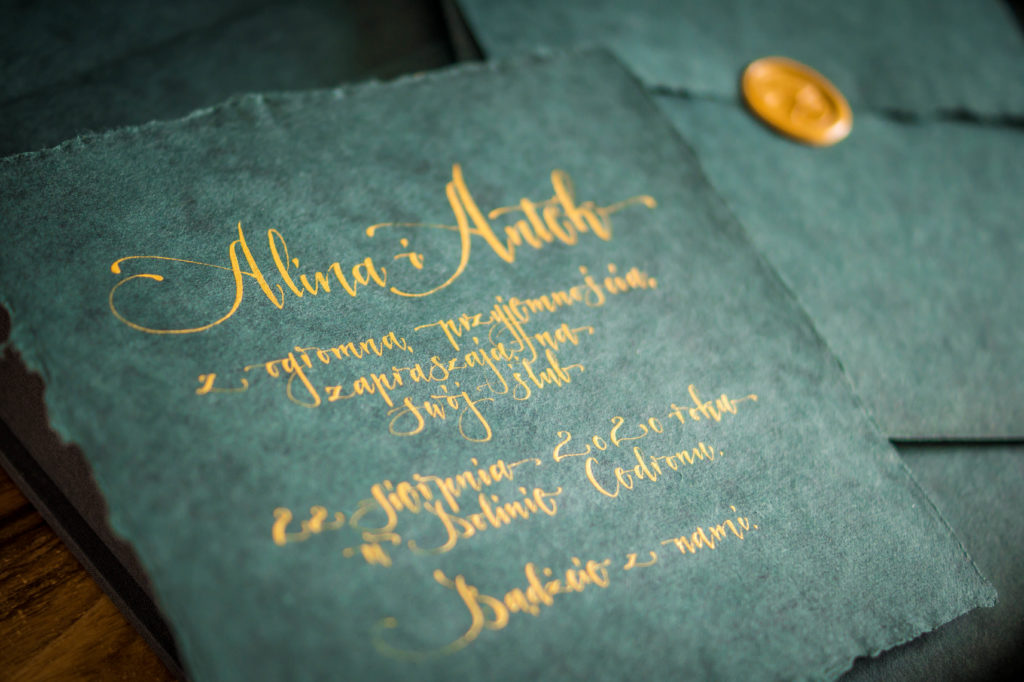 Alina i Antek
z ogromną przyjemnością
zapraszają na
swój ślub
22 sierpnia 2020 roku
w Dolinie Cedronu.
Bądźcie z nami.